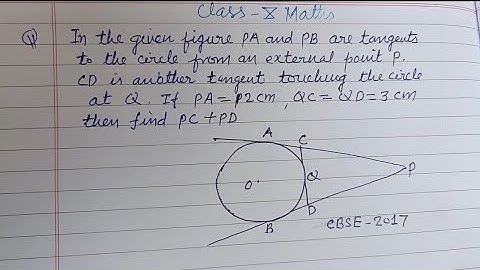 Class-X Maths
Q) In the given figure PA and PB are tangents
to the circle from an external point P.
CD is another tangent touching the circle
at Q. If PA = 12cm, QC = QD = 3 cm
then find PC + PD
A
C
Q
P
O
D
B
CBSE-2017